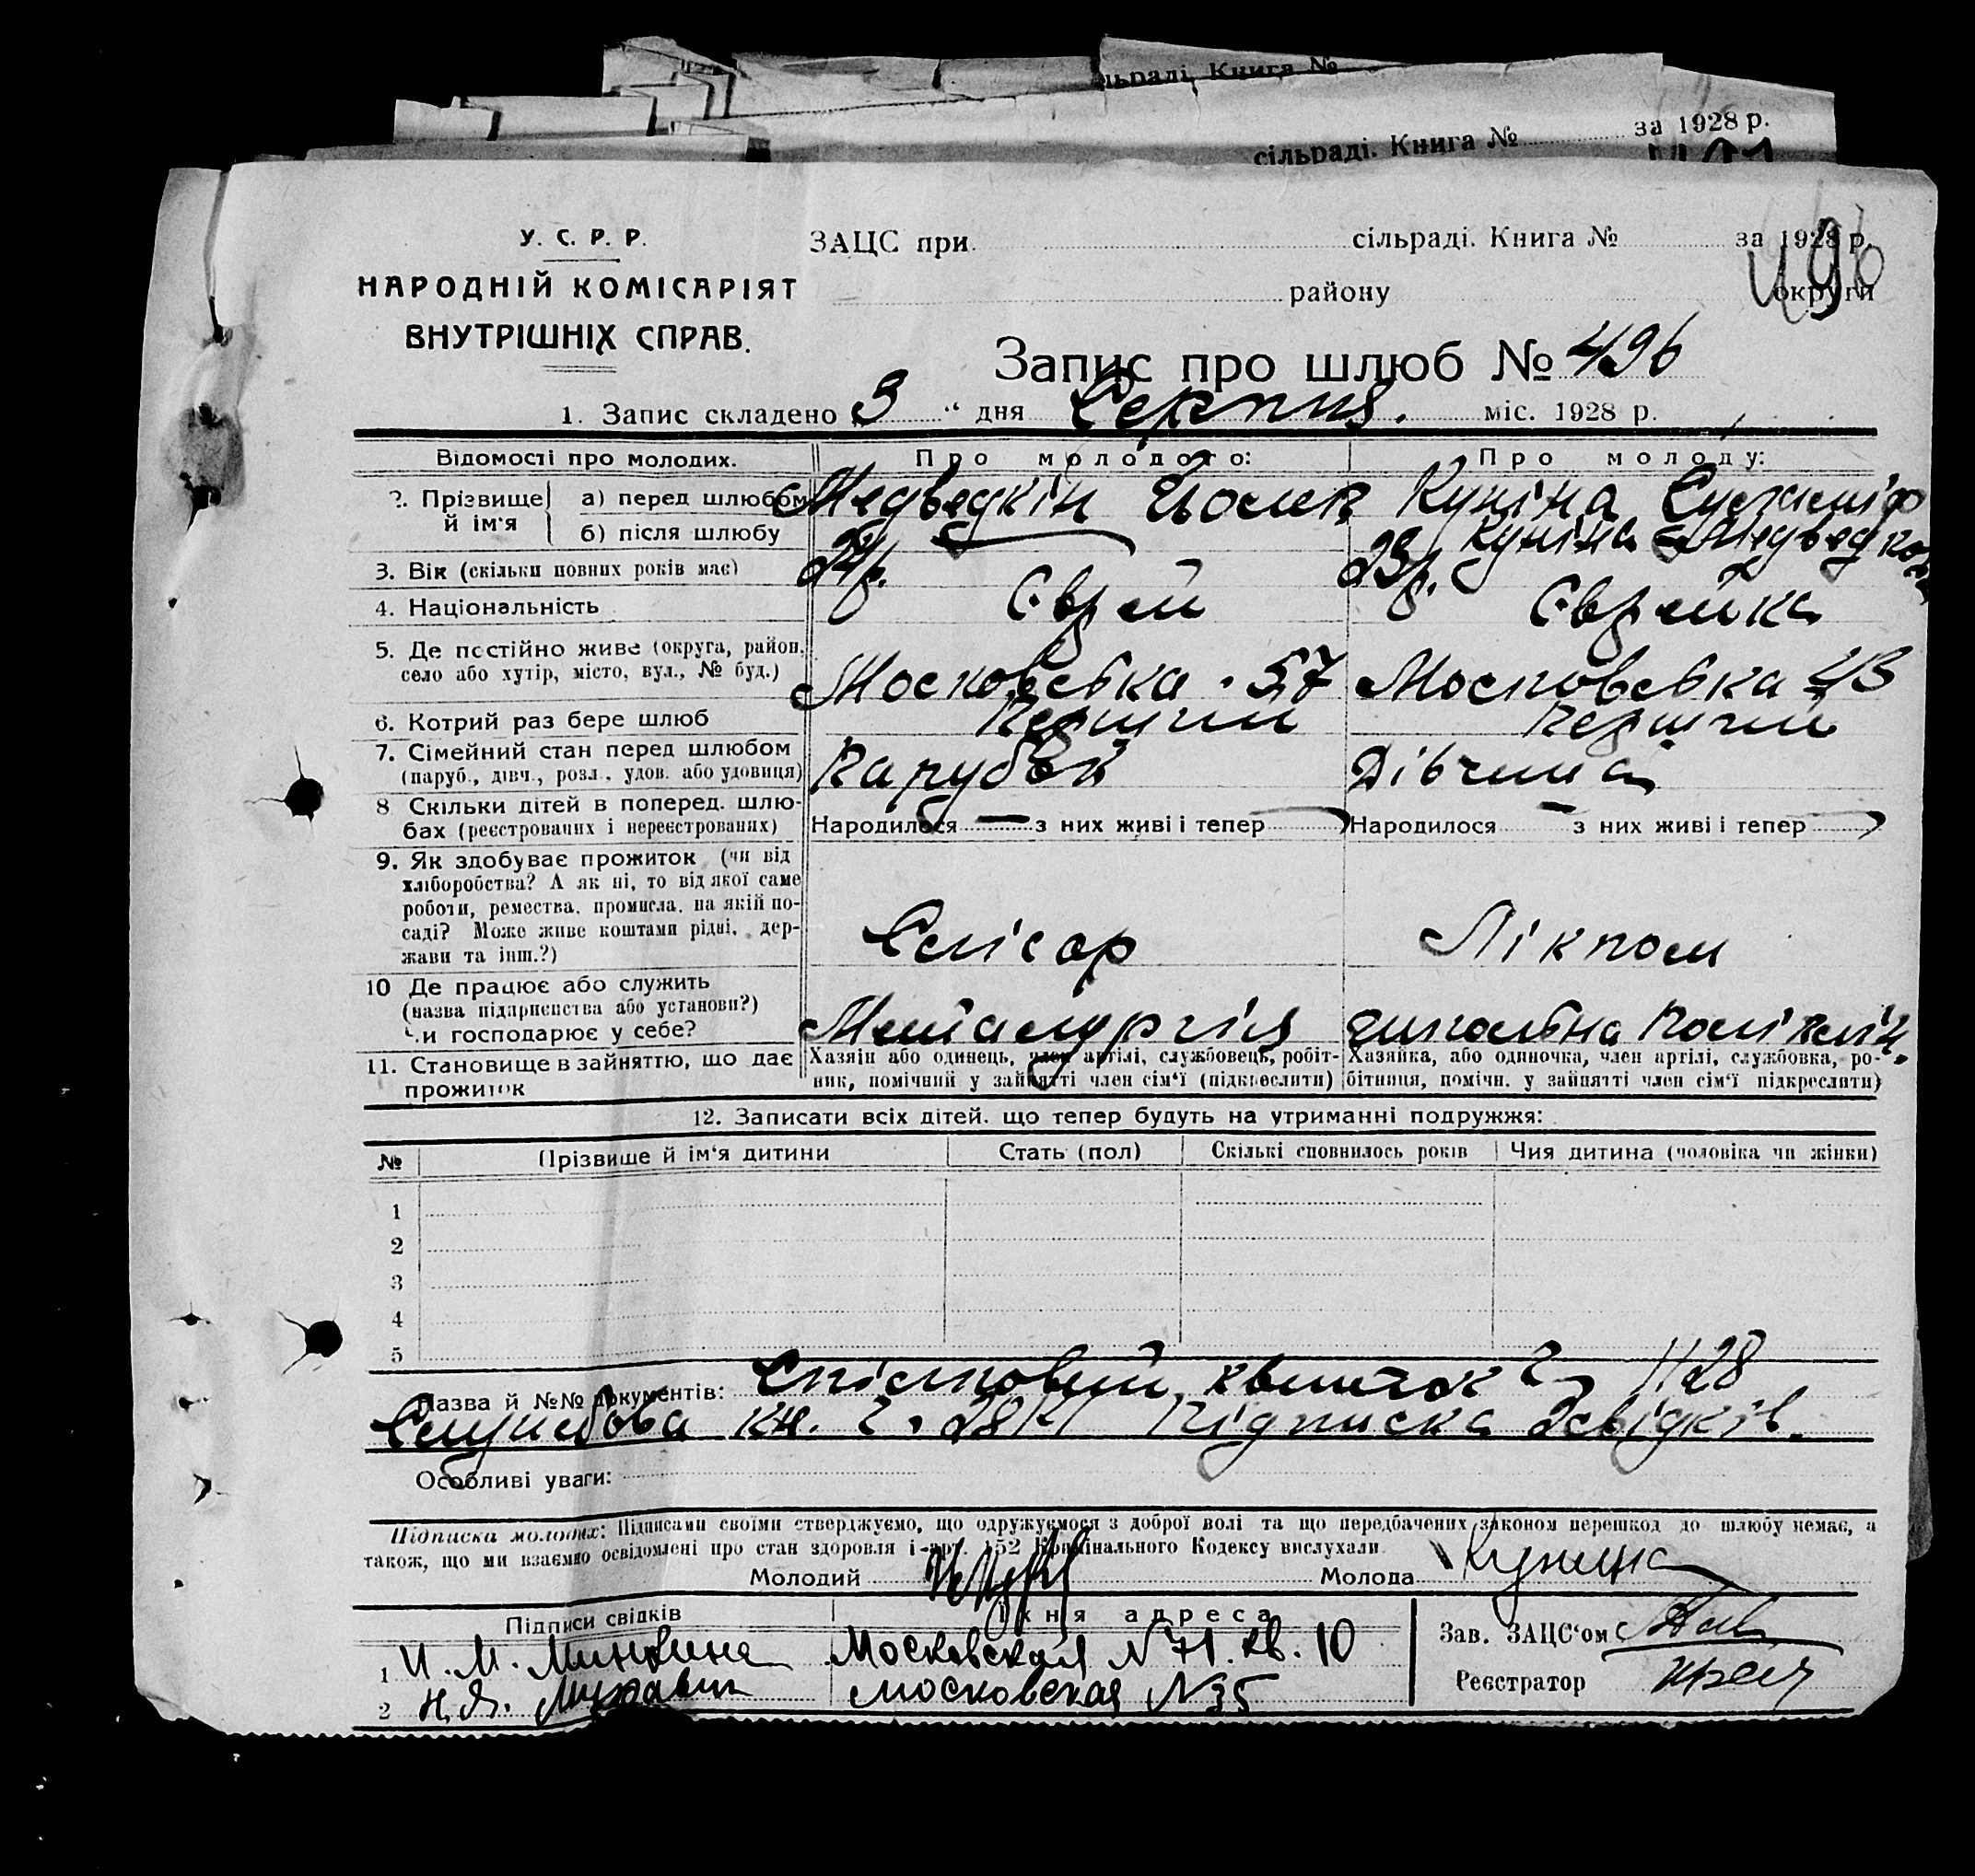 сільраді. Книга №
сільраді. Книга № за 1928 р.
У. С. Р. Р.
НАРОДНІЙ КОМІСАРІЯТ
ВНУТРІШНІХ СПРАВ.
ЗАЦС при сільраді. Книга № за 1928 р.
496
району округи
Запис про шлюб № 496
1. Запис складено 3 “ дня Серпня. міс. 1928 р.
Відомості про молодих. Про молодого: Про молоду:
2. Прізвище й ім‘я а) перед шлюбом Медведкін Куніна
б) після шлюбу Куніна - Медведкова
3. Вік (скільки повних років має) 24р. 23р.
4. Національність Єврей Єврейка
5. Де постійно живе (округа, район, Московська 57 Московська 43
село або хутір, місто, вул., № буд.)
6. Котрий раз бере шлюб Перший Перший
7. Сімейний стан перед шлюбом Парубок Дівчина
(паруб., дівч., розл., удов. або удовиця)
8 Скільки дітей в поперед. шлю-
бах (реєстрованих і нереєстрованих) Народилося — з них живі і тепер Народилося — з них живі і тепер
9. Як здобуває прожиток (чи від
хліборобства? А як ні, то від якої саме
роботи, ремества, промисла, на якій по-
саді? Може живе коштами рідні, дер-
жави та інш.?) Слісар Лікпом
10 Де працює або служить
(назва підприємства або установи?) Металургія Поліклін.
Чи господарює у себе?
11. Становище в зайняттю, що дає
прожиток
Хазяїн або одинець, член артілі, службовець, робіт-
ник, помічний у зайнятті член сім‘ї (підкреслити)
Хазяйка, або одиночка, член артілі, службовка, ро-
бітниця, помічн. у зайнятті член сім‘ї підкреслити)
12. Записати всіх дітей. що тепер будуть на утриманні подружжя:
№ Прізвище й ім‘я дитини Стать (пол) Скількі сповнилось років Чия дитина (чоловіка чи жінки)
1
2
3
4
5
Назва й №№ документів: квиток 1128
Службова кн. Підписка 2 свідків.
Особливі уваги:
Підписка молодих: Підписами своїми стверджуємо, що одружуємося з доброї волі та що передбачених законом перешкод до шлюбу немає, а
також, що ми взаємно освідомлені про стан здоровля і арт. 152 Кримінального Кодексу вислухали.
Молодий Молода Кунина
Підписи свідків Їхня адреса
1 И. М. Минкина Московская N 71. кв. 10
2 Московская N 35
Зав. ЗАЦС‘ом
Реєстратор